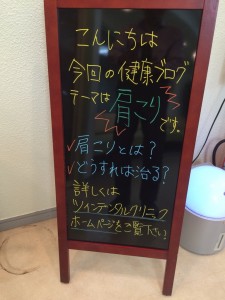 こんにちは
今回の健康ブログ
テーマは肩こり
です。
✓肩こりとは？
✓どうすれば治る？
詳しくは
ツインデンタルクリニック
ホームページをご覧下さい